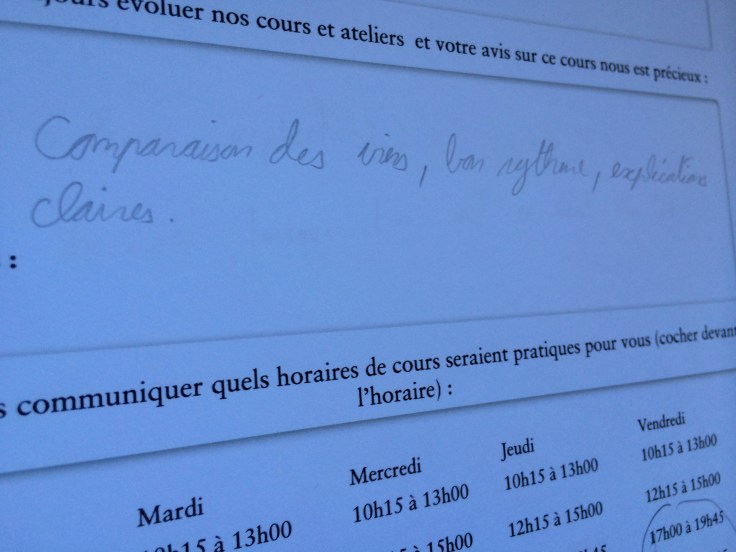 évoluer nos cours et ateliers et votre avis sur ce cours nous est précieux :
Comparaison des vins, bon rythme, explications
claires.
:
communiquer quels horaires de cours seraient pratiques pour vous (cocher devant
l'horaire) :
Mardi Mercredi Jeudi Vendredi
10h15 à 13h00 10h15 à 13h00 10h15 à 13h00 10h15 à 13h00
15h00 12h15 à 15h00 12h15 à 15h00
17h00 à 19h45